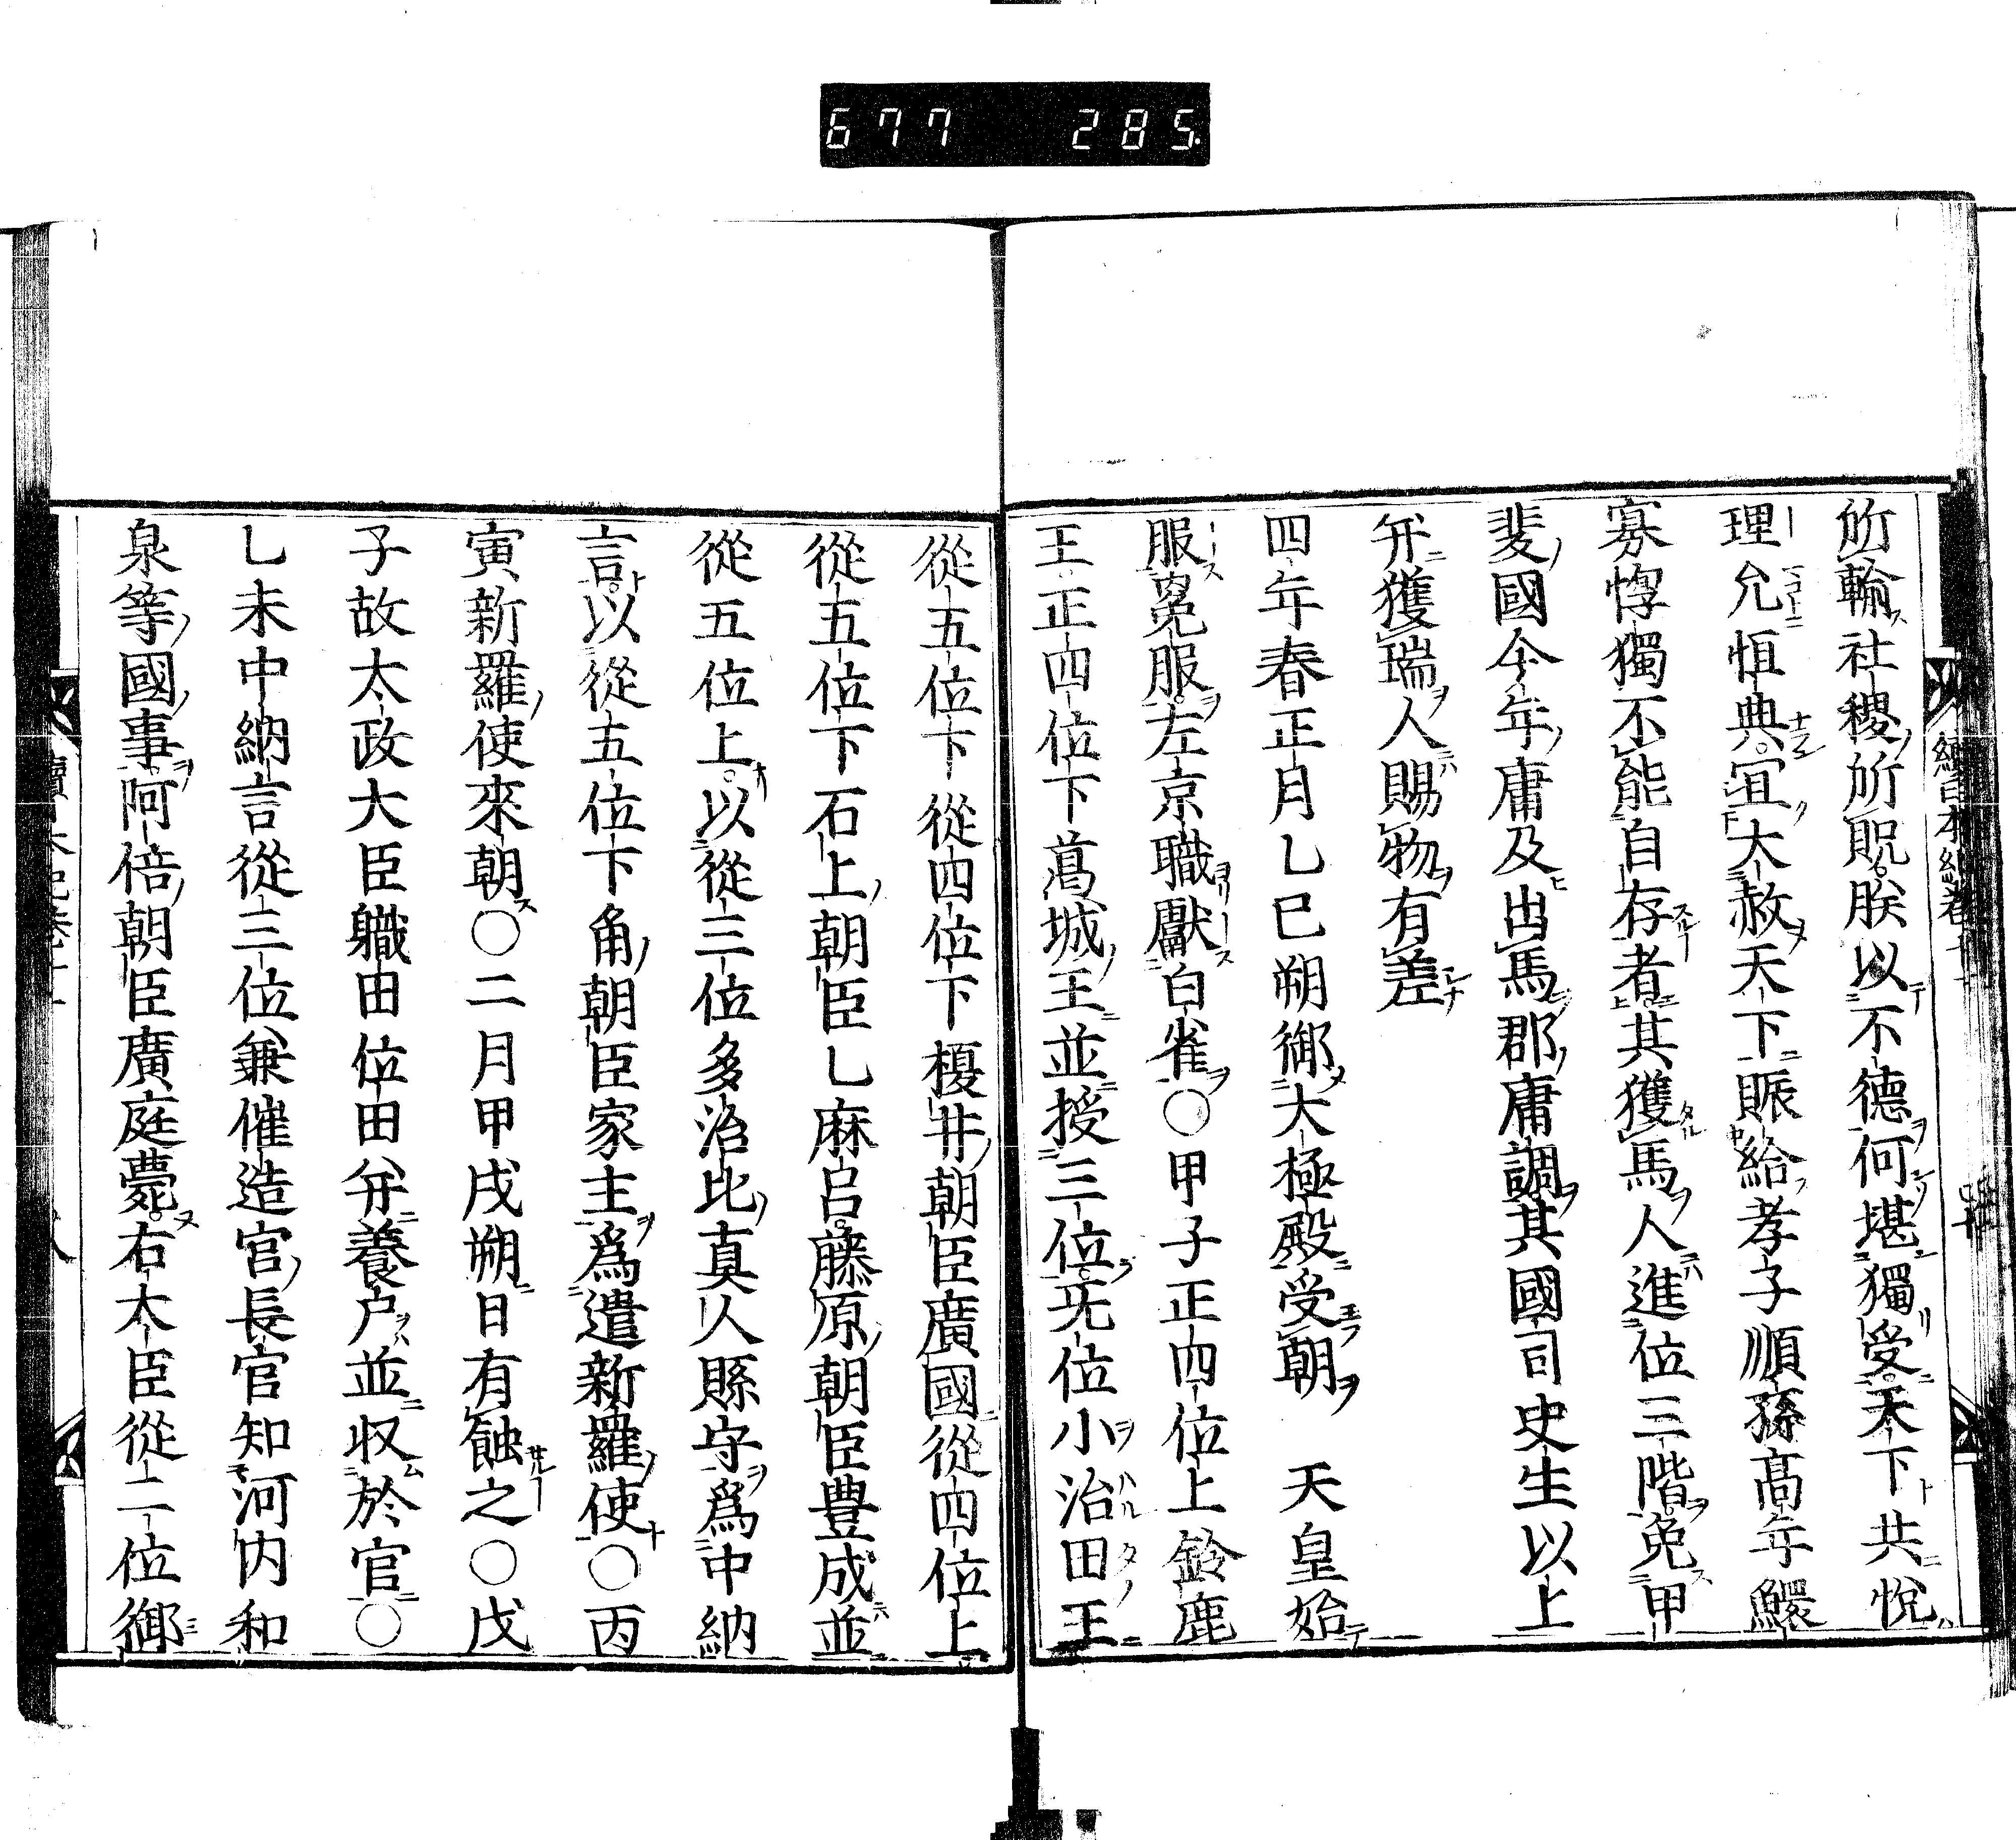 677 285
所輸社稷所貺朕以不德何堪獨受天下共悅
理允恒典宜大赦天下賑給孝子順孫髙年鰥
寡惸獨不能自存者其獲馬人進位三階免甲
斐國今年庸及出馬郡庸調其國司史生以上
并獲瑞人賜物有差
四年春正月乙巳朔御大極殿受朝　天皇始
服冕服左京職獻白雀〇甲子正四位上鈴鹿
王正四位下葛城王並授三位无位小治田王
從五位下從四位下榎井朝臣廣國從四位上
從五位下石上朝臣乙麻呂藤原朝臣豊成並
從五位上以從三位多治比真人縣守爲中納
言以從五位下角朝臣家主爲遣新羅使〇丙
寅新羅使來朝〇二月甲戌朔日有蝕之〇戊
子故太政大臣職田位田并養户並収於官〇
乙未中納言從三位兼催造官長官知河内和
泉等國事阿倍朝臣廣庭薨右大臣從二位御